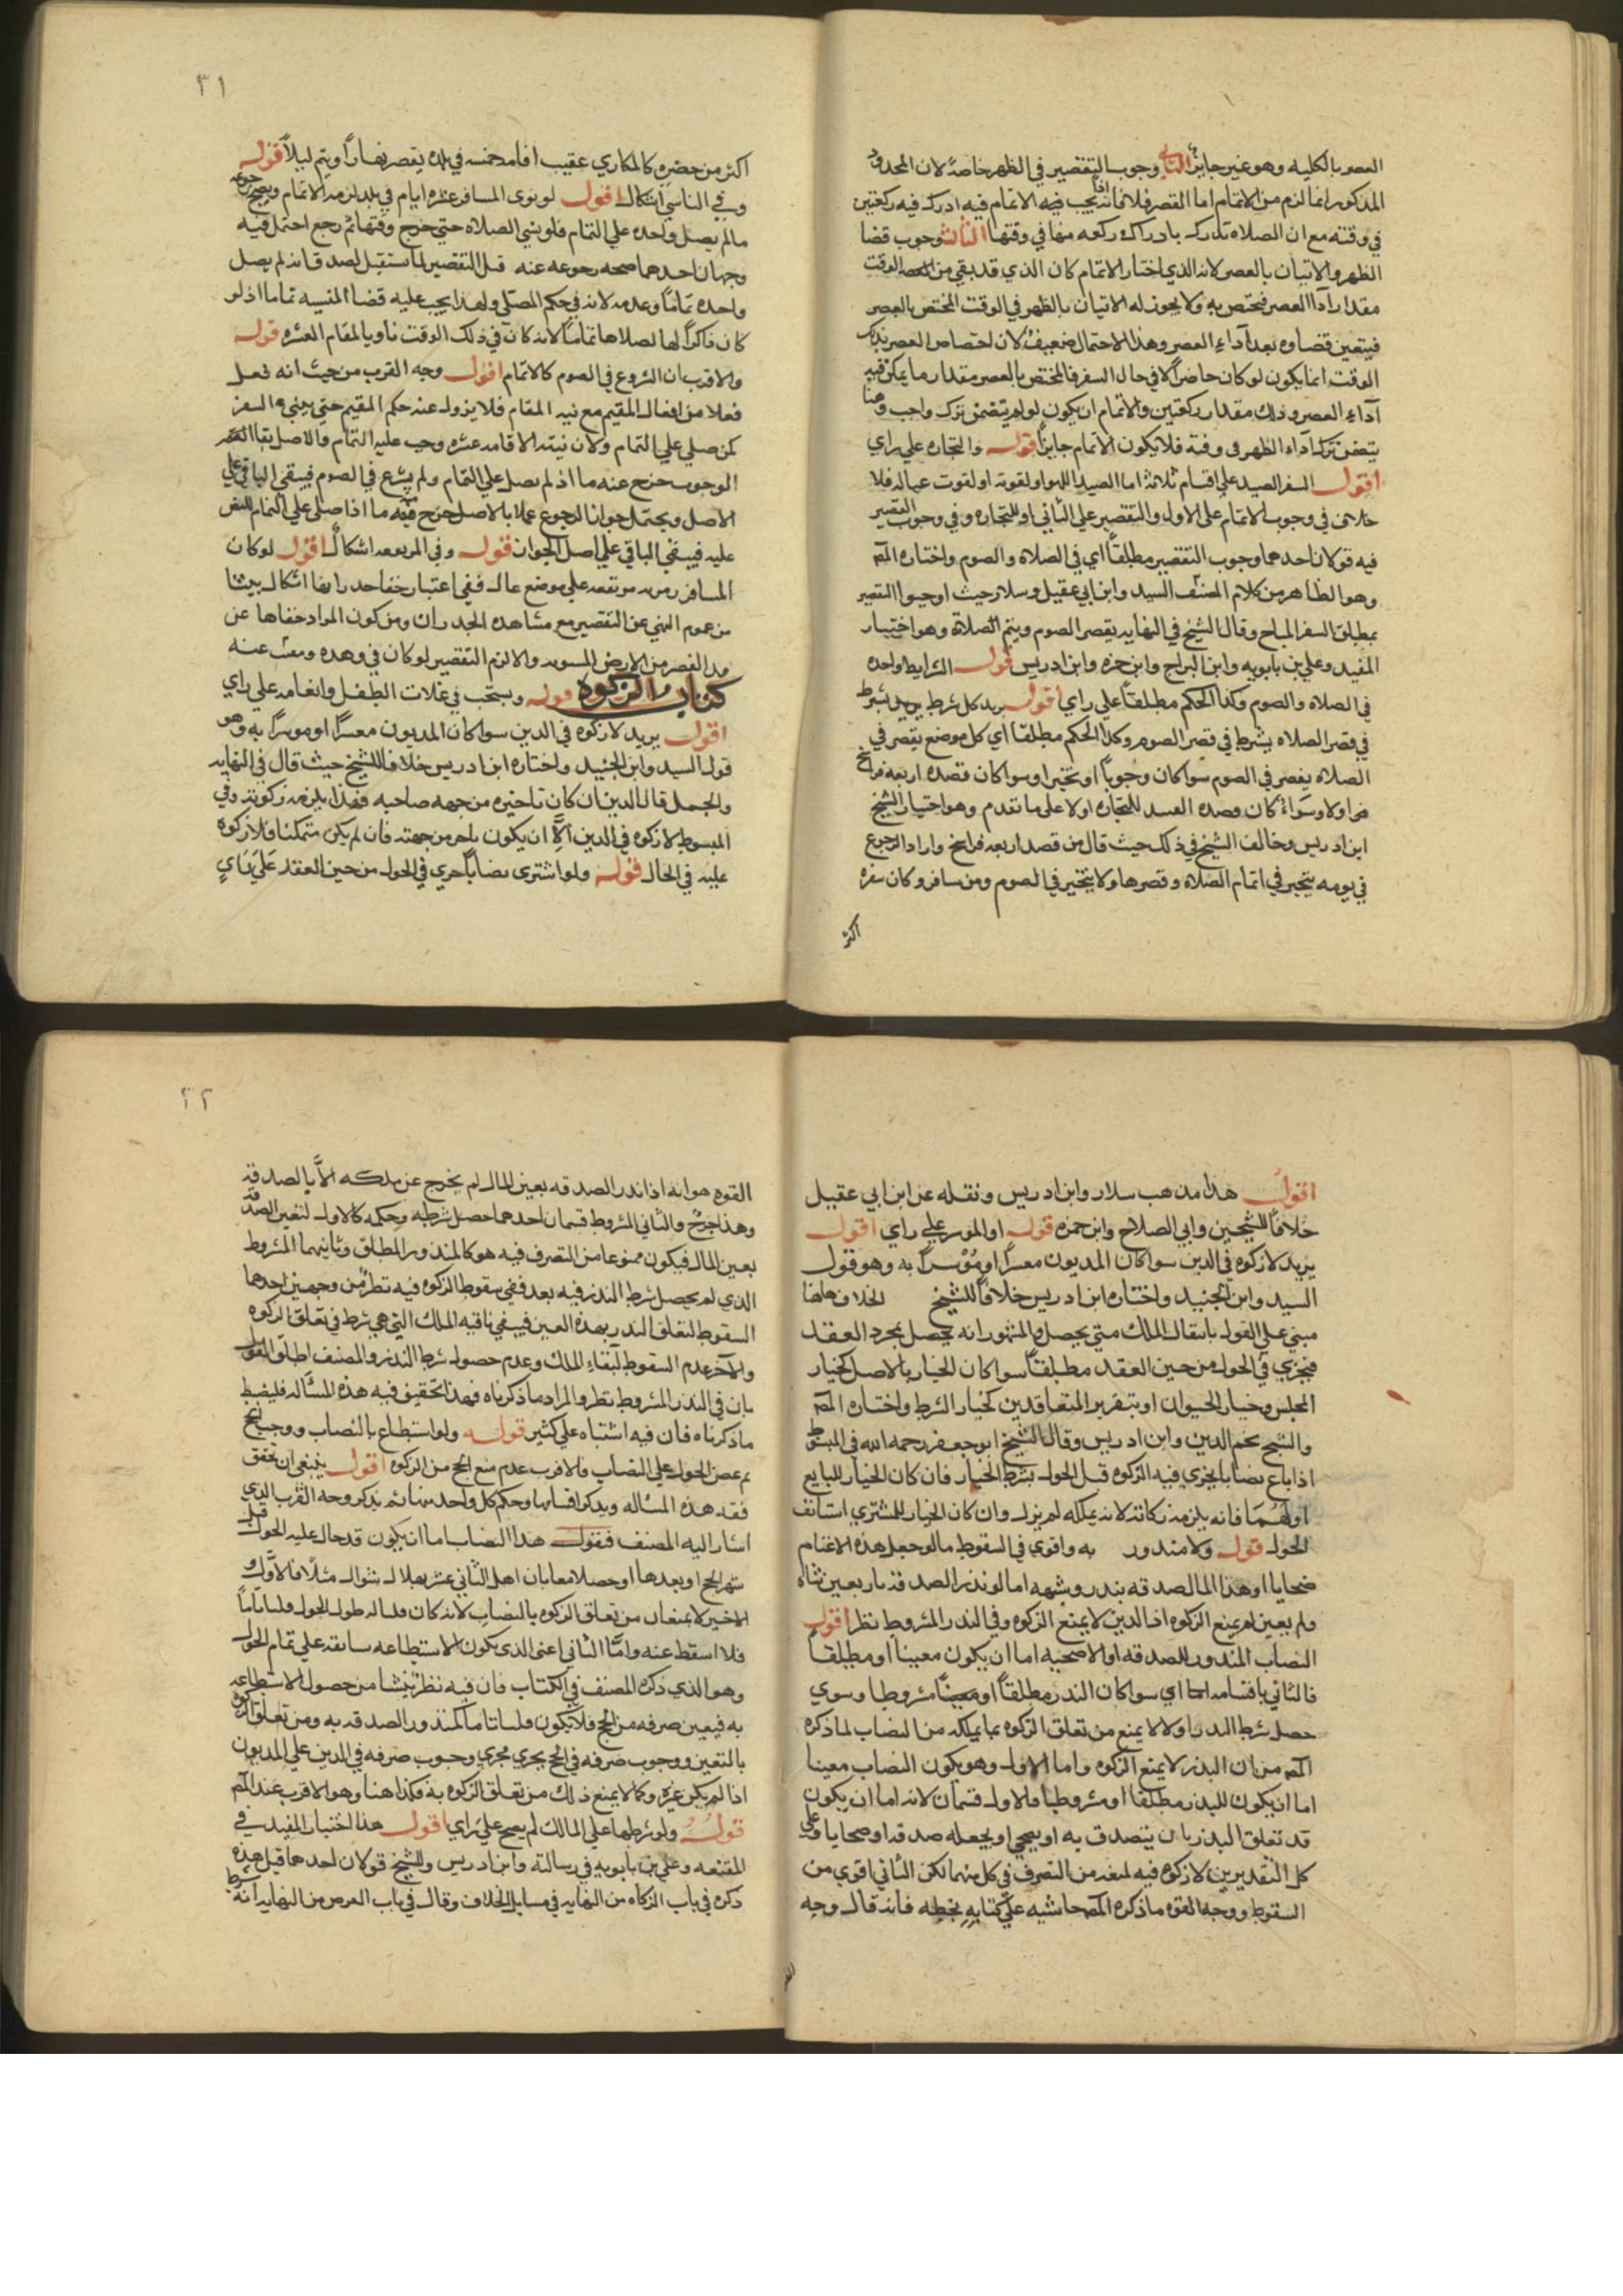 العصر بالكليه وهو غير جايز الثاني وجوب التقصير في الظهر خاصة لان المحذور
المذكور انما لزم من الاتمام اما القصر فلا فانه يجب فيه الاتمام فيه ادرك فيه ركعتين
في وقته مع ان الصلاه تدرك بادراك ركعه منها في وقتها الثالث وجوب قضا
الظهر والاتيان بالعصر لانه الذي اختار الاتمام كان الذي قد بقي من الوقت
مقدار آدا العصر فيختص به ولا يجوز له الاتيان بالظهر في الوقت المختص بالعصر
فيتعين قضاوه بعد آداء العصر وهذا الاحتمال ضعيف لان اختصاص العصر بذلك
الوقت انما يكون لو كان حاضرا لا في حال السفر فالمختص بالعصر مقدار ما يمكن فيه
آداء العصر وذلك مقدار ركعتين والاتمام ان يكون لو لم يتضمن ترك واجب وهنا
يتضمن ترك آداء الظهر في وقته فلا يكون الاتمام جايزا قوله والتجاره علي راي
اقول السفر للصيد علي اقسام ثلاثة اما الصيد اللهو او لقوته او لقوت عياله فلا
خلاف في وجوب الاتمام علي الاول والتقصير علي الثاني او للتجاره وفي وجوب التقصير
فيه قولان احدهما وجوب التقصير مطلقا اي في الصلاه والصوم واختاره المصـ
وهو الظاهر من كلام المصنف السيد وابن ابي عقيل وسلار حيث اوجبوا التقصير
بمطلق السفر المباح وقال الشيخ في النهايه يقصر الصوم ويتم الصلاة وهو اختيار
المفيد وعلي بن بابويه وابن البراج وابن حمزه وابن ادريس قوله الشرايط واحده
في الصلاه والصوم وكذا الحكم مطلقا علي راي اقول يريد كل شرط يشترط
في قصر الصلاه يشترط في قصر الصوم وكذا الحكم مطلقا اي كل موضع يقصر في
الصلاه يقصر في الصوم سوا كان وجوبا او تخيرا وسوا كان قصده اربعه فراسخ
ام اولا وسواء كان قصده الصيد للتجاره اولا علي ما تقدم وهو اختيار الشيخ
ابن ادريس وخالف الشيخ في ذلك حيث قال من قصد اربعه فراسخ واراد الرجوع
في يومه يتخير في اتمام الصلاه وقصرها ولا يتخير في الصوم ومن سافر وكان سفره
اكثر
٣١
اكثر من حضره كالمكاري عقيب اقامه خمسه في بلده يقصر نهارا ويتم ليلا قوله
وفي الناسي اشكال اقول لو نوى المسافر عشره ايام في بلد لزمه الاتمام ويصح رجوعه
ما لم يصل واحده علي التمام فلو نسي الصلاه حتى خرج وقتها ثم رجع احتمل فيه
وجهان احدهما صحه رجوعه عنه قبل التقصير لما ستقبل لصدق انه لم يصل
واحده تماما وعدمه لانه في حكم المصلي ولهذا يجب عليه قضا المنسيه تماما اذ لو
كان ذاكرا لها لصلاها تماما لانه كان في ذلك الوقت ناويا لمقام العشره قوله
والاقرب ان الشروع في الصوم كالاتمام اقول وجه القرب من حيث انه فعل
فعلا من افعال المقيم مع نيه المقام فلا يزول عنه حكم المقيم حتى ينشي السفر
كمن صلي علي التمام ولان نيته الاقامه عشره وجب عليه التمام والاصل بقا
الوجوب خرج عنه ما اذ لم يصل علي التمام ولم يشرع في الصوم فيبقي الباقي علي
الاصل ويحتمل جواز الرجوع عملا بالاصل خرج فيه ما اذا صلي علي التمام للنص
عليه فيبقي الباقي علي اصل الجواز قوله وفي المرتفعه اشكال اقول لو كان
المسافر من مرتفعه علي موضع عال ففي اعتبار خفا جدرانها اشكال ينشا
من عموم النهي عن التقصير مع مشاهده الجدران ومن كون المراد خفاها عن
مريد القصر من الارض المستويه والا لزم التقصير لو كان في وهده ومنعت عنه
كتاب الزكوه قوله ويستحب في غلات الطفل وانعامه علي راي
اقول يريد لا زكوه في الدين سوا كان المديون معسرا او موسرا به وهو
قول السيد وابن الجنيد واختاره ابن ادريس خلافا للشيخ حيث قال في النهايه
والجمل قال الدين ان كان تاخيره من جهه صاحبه فهذا يلزمه زكوته وفي
المبسوط لا زكوه في الدين الا ان يكون تاخره من جهته فان لم يكن متمكنا فلا زكوه
عليه في الحال قوله ولو اشترى نصابا جري في الحول من حين العقد علي راي
اقول هذا مذهب سلار وابن ادريس ونقله عن ابن ابي عقيل
خلافا للشيخين وابي الصلاح وابن حمزه قوله او الموسر علي راي اقول
يريد لا زكوه في الدين سوا كان المديون معسرا او مؤسرا به وهو قول
السيد وابن الجنيد واختاره ابن ادريس خلافا للشيخ الخلاف هاهنا
مبني علي القول بانتقال الملك متي يحصل والمشهور انه يحصل بمجرد العقد
فيجزي في الحول من حين العقد مطلقا سوا كان الخيار بالاصل كخيار
المجلس وخيار الحيوان او بتقرير المتعاقدين كخيار الشرط واختاره المصـ
والشيخ نجم الدين وابن ادريس وقال الشيخ ابو جعفر رحمه الله في المبسوط
اذا باع نصابا يجزي فيه الزكوه قبل الحول بشرط الخيار فان كان الخيار للبايع
او لهما فانه يلزمه زكاته لانه يملكه لم يزل وان كان الخيار للمشتري استانف
الحول قوله ولا منذور به واقوي في السقوط ما لو جعل هذه الاغنام
ضحايا او هذا المال صدقه بنذر وشبهه اما لو نذر الصدقه باربعين شاه
ولم يعين لم يمنع الزكوه اذ الدين لا يمنع الزكوه وفي النذر المشروط نظر اقول
النصاب المنذور للصدقه او الاضحيه اما ان يكون معينا او مطلقا
فالثاني باقسامه اي سوا كان النذر مطلقا او معينا مشروطا وسوي
حصل شرط النذر او لا لا يمنع من تعلق الزكوه بما يملكه من النصاب لما ذكره
المصـ من ان النذر لا يمنع الزكوه واما الاول وهو يكون النصاب معينا
اما ان يكون للنذر مطلقا او مشروطا والاول قسمان لانه اما ان يكون
قد تعلق النذر بان يتصدق به او يضحي او يجعله صدقه او ضحايا وعلي
كل التقديرين لا زكوه فيه لمنعه من التصرف في كل منهما لكن الثاني اقوي من
السقوط ووجه القوه ما ذكره المصـ حاشيه علي كتابه بخطه فانه قال وجه
٣٢
القوه هو انه اذا نذر الصدقه بعين المال لم يخرج عن ملكه الا بالصدقه
وهذا خرج والثاني المشروط قسمان احدهما حصل شرطه وحكمه كالاول لتعين الصدقه
بعين المال فيكون ممنوعا من التصرف فيه هو كالمنذور المطلق وثانيهما المشروط
الذي لم يحصل شرط النذر فيه بعد ففي سقوط الزكوه فيه نظر من وجهين احدهما
السقوط لتعلق النذر بهذه العين فيبقي ناقصه الملك التي هي شرط في تعلق الزكوه
والاخر عدم السقوط لبقاء الملك وعدم حصول شرط النذر والمصنف اطلق القول
بان في النذر المشروط نظر والمراد ما ذكرناه فهذا تحقيق فيه هذه المسأله فليضبط
ما ذكرناه فان فيه اشتباه علي كثير قوله ولو استطاع بالنصاب ووجب الحج
ثم مضي الحول علي النصاب فالاقرب عدم منع الحج من الزكوه اقول ينبغي ان نحقق
فقه هذه المساله ونذكر اقسامها وحكم كل واحد منها ثم نذكر وجه القرب الذي
اشار اليه المصنف فنقول هذا النصاب اما ان يكون قد حال عليه الحول قبل
شهر الحج او بعدها او حصلا معا بان اهل الثاني عشر بهلال شوال مثلا فالاول و
الاخير لا يمنعان من تعلق الزكوه بالنصاب لانه كان ماله طول الحول ملكا تاما
فلا اسقط عنه واما الثاني اعني الذي يكون الاستطاعه سابقه علي تمام الحول
وهو الذي ذكره المصنف في الكتاب فان فيه نظر ينشا من حصول الاستطاعه
به فيعين صرفه من الحج فلا يكون ملكا تاما كمنذور الصدقه به ومن تعلق الزكوه
بالتعين ووجوب صرفه في الحج يجري مجري وجوب صرفه في الدين علي المديون
اذا لم يكن غيره وكما لا يمنع ذلك من تعلق الزكوه به فكذا هنا وهو الاقرب عند المصـ
قوله ولو شرطها علي المالك لم يصح علي راي اقول هذا اختيار المفيد في
المقنعه وعلي بن بابويه في رسالته وابن ادريس وللشيخ قولان احدهما قبل هذه
ذكره في باب الزكاه من النهايه في مسايل الخلاف وقال في باب القرض من النهايه انه شرط